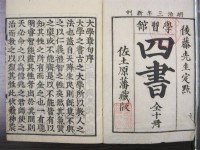 明治三年新刊
後藤先生定點
四書
全十冊
學習館
佐土原藩藏版
大學章句序
大學之書古之大學所以教人之
法也蓋自天降生民則既莫不與
之以仁義禮智之性矣然其氣質
之稟或不能齊是以不能皆有以
知其性之所有而全之也一有聰
明睿智能盡其性者出於其閒則
天必命之以爲億兆之君師使之
治而教之以復其性此伏羲神農